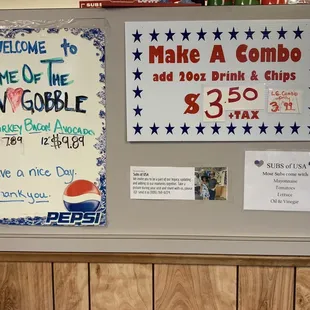 WELCOME to
ME OF THE
GOBBLE
RKEY BACON AVOCADO
7.89 12" $9.89
ve a nice Day.
hank you.
PEPSI
Make A Combo
add 20oz Drink & Chips
$3.50
+TAX
LG
Combo
3/99
Subs of USA
SUBS of USA
Most Subs come with
Mayonnaise
Tomatoes
Lettuce
Oil & Vinegar